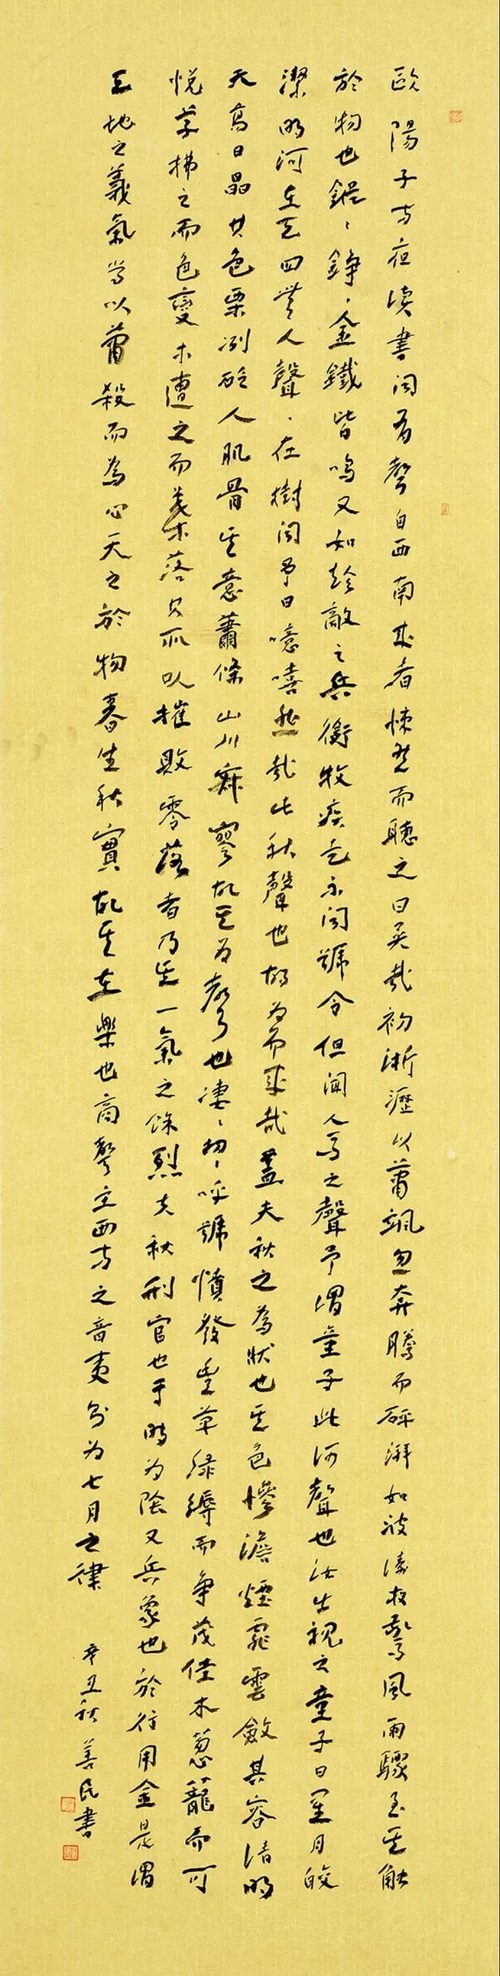 歐陽子方夜讀書聞有聲自西南來者悚然而聽之曰異哉初淅瀝以蕭颯忽奔騰而砰湃如波濤夜驚風雨驟至其觸
於物也鏦鏦錚錚金鐵皆鳴又如赴敵之兵銜枚疾走不聞號令但聞人馬之聲予謂童子此何聲也汝出視之童子曰星月皎
潔明河在天四無人聲聲在樹間予曰噫嘻悲哉此秋聲也胡為而來哉蓋夫秋之為狀也其色慘澹煙霏雲斂其容清明
天高日晶其色栗冽砭人肌骨其意蕭條山川寂寥故其為聲也淒淒切切呼號憤發豐草綠縟而爭茂佳木蔥蘢而可
悅草拂之而色變木遭之而葉落其所以摧敗零落者乃其一氣之餘烈夫秋刑官也于時為陰又兵象也於行用金是謂
天地之義氣常以肅殺而為心天之於物春生秋實故其在樂也商聲主西方之音夷則為七月之律
辛丑秋善民書